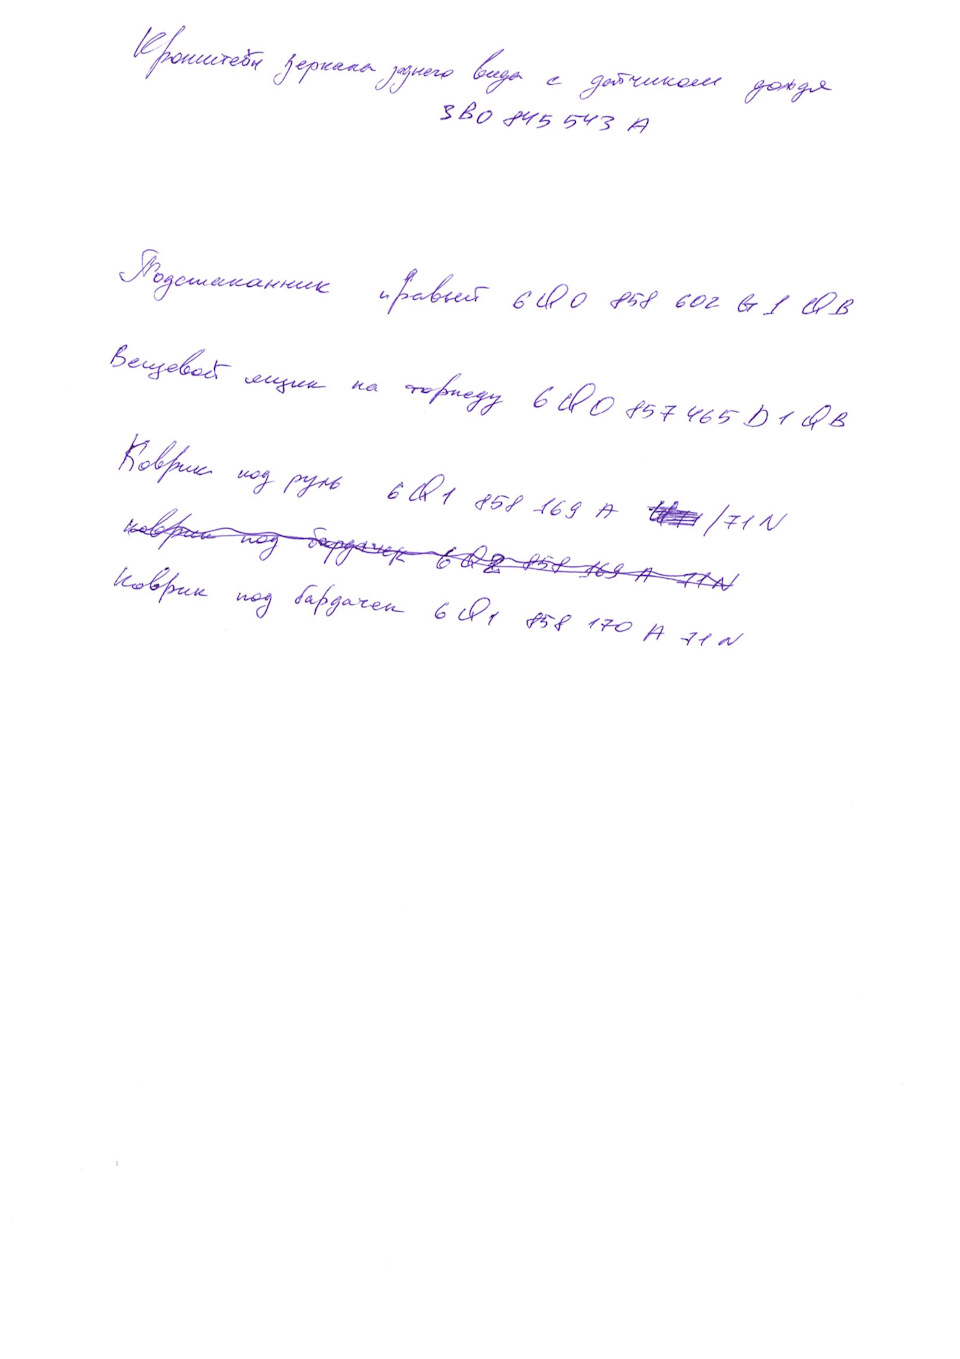 Кронштейн зеркала заднего вида с датчиком дождя
3B0 845 543 A
Подстаканник правый 6Q0 858 602 G 1 QB
Вещевой ящик на торпеду 6Q0 857 465 D 1 QB
Коврик под руль 6Q1 858 169 A /71N
коврик под бардачек 6Q2 858 169 A 71N
Коврик под бардачек 6Q1 858 170 A 71N